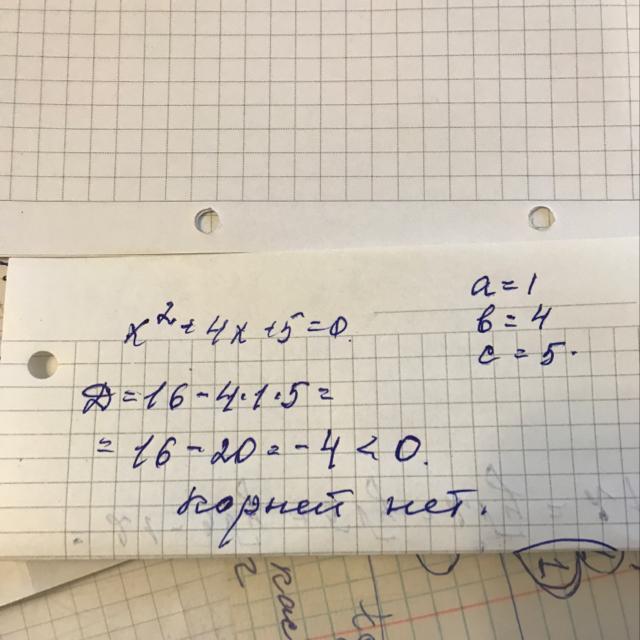 x² + 4x + 5 = 0.
a = 1
в = 4
c = 5.
Д = 16 - 4·1·5 =
= 16 - 20 = -4 < 0.
корней нет.
1